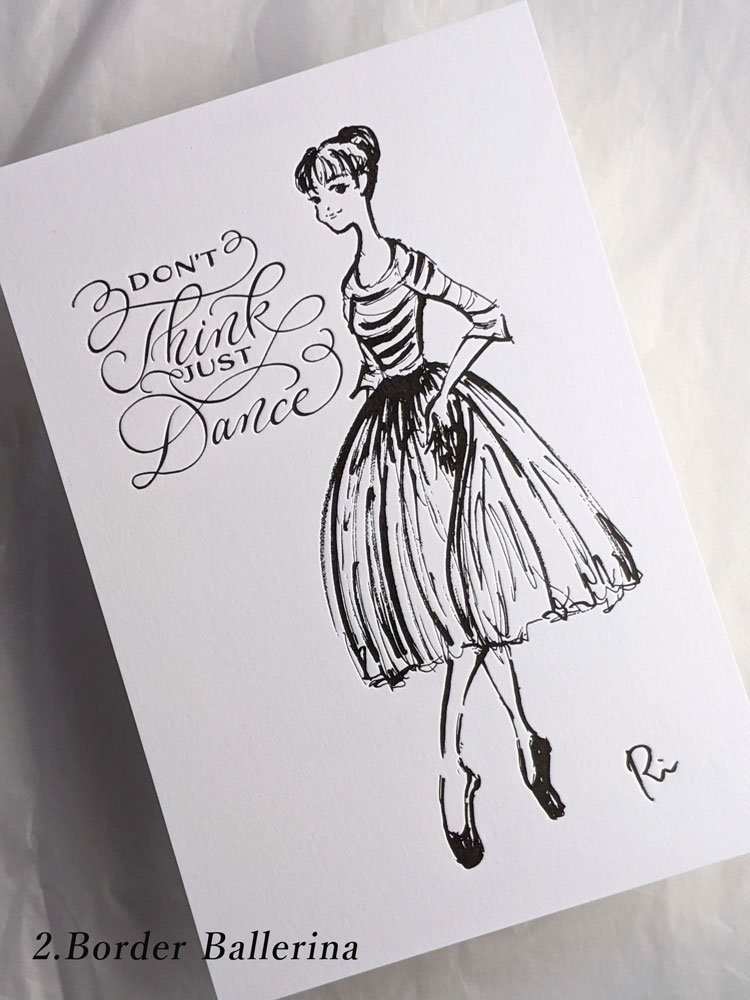 DON'T
Think
JUST
Dance
Ri
2.Border Ballerina